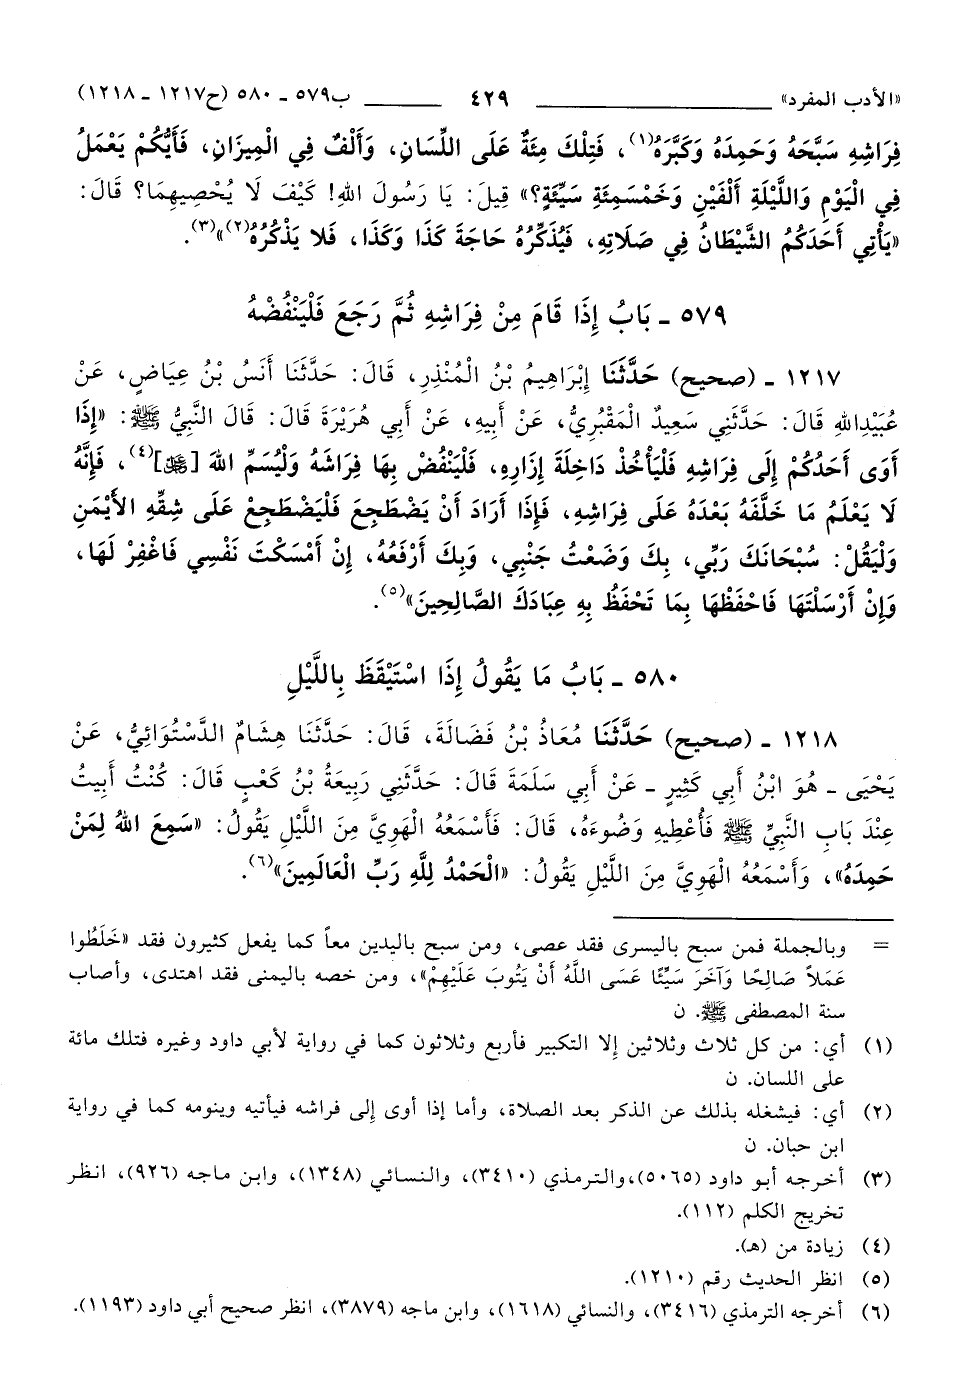 «الأدب المفرد» ٤٢٩ ب٥٧٩ ـ ٥٨٠ (ح١٢١٧ ـ ١٢١٨)
فِرَاشِهِ سَبَّحَهُ وَحَمِدَهُ وَكَبَّرَهُ(١)، فَتِلْكَ مِئَةٌ عَلَى اللِّسَانِ، وَأَلْفٌ فِي الْمِيزَانِ، فَأَيُّكُمْ يَعْمَلُ
فِي الْيَوْمِ وَاللَّيْلَةِ أَلْفَيْنِ وَخَمْسَمِئَةِ سَيِّئَةٍ؟» قِيلَ: يَا رَسُولَ اللهِ! كَيْفَ لَا يُحْصِيهِمَا؟ قَالَ:
«يَأْتِي أَحَدَكُمُ الشَّيْطَانُ فِي صَلَاتِهِ، فَيُذَكِّرُهُ حَاجَةَ كَذَا وَكَذَا، فَلا يَذْكُرُهُ(٢)»(٣).
٥٧٩ ـ بَابُ إِذَا قَامَ مِنْ فِرَاشِهِ ثُمَّ رَجَعَ فَلْيَنْفُضْهُ
١٢١٧ ـ (صحيح) حَدَّثَنَا إِبْرَاهِيمُ بْنُ الْمُنْذِرِ، قَالَ: حَدَّثَنَا أَنَسُ بْنُ عِيَاضٍ، عَنْ
عُبَيْدِاللهِ قَالَ: حَدَّثَنِي سَعِيدٌ الْمَقْبُرِيُّ، عَنْ أَبِيهِ، عَنْ أَبِي هُرَيْرَةَ قَالَ: قَالَ النَّبِيُّ ﷺ: «إِذَا
أَوَى أَحَدُكُمْ إِلَى فِرَاشِهِ فَلْيَأْخُذْ دَاخِلَةَ إِزَارِهِ، فَلْيَنْفُضْ بِهَا فِرَاشَهُ وَلْيُسَمِّ اللهَ [ﷻ](٤)، فَإِنَّهُ
لَا يَعْلَمُ مَا خَلَّفَهُ بَعْدَهُ عَلَى فِرَاشِهِ، فَإِذَا أَرَادَ أَنْ يَضْطَجِعَ فَلْيَضْطَجِعْ عَلَى شِقِّهِ الأَيْمَنِ
وَلْيَقُلْ: سُبْحَانَكَ رَبِّي، بِكَ وَضَعْتُ جَنْبِي، وَبِكَ أَرْفَعُهُ، إِنْ أَمْسَكْتَ نَفْسِي فَاغْفِرْ لَهَا،
وَإِنْ أَرْسَلْتَهَا فَاحْفَظْهَا بِمَا تَحْفَظُ بِهِ عِبَادَكَ الصَّالِحِينَ»(٥).
٥٨٠ ـ بَابُ مَا يَقُولُ إِذَا اسْتَيْقَظَ بِاللَّيْلِ
١٢١٨ ـ (صحيح) حَدَّثَنَا مُعَاذُ بْنُ فَضَالَةَ، قَالَ: حَدَّثَنَا هِشَامٌ الدَّسْتُوَائِيُّ، عَنْ
يَحْيَى ـ هُوَ ابْنُ أَبِي كَثِيرٍ ـ عَنْ أَبِي سَلَمَةَ قَالَ: حَدَّثَنِي رَبِيعَةُ بْنُ كَعْبٍ قَالَ: كُنْتُ أَبِيتُ
عِنْدَ بَابِ النَّبِيِّ ﷺ فَأُعْطِيهِ وَضُوءَهُ، قَالَ: فَأَسْمَعُهُ الْهَوِيَّ مِنَ اللَّيْلِ يَقُولُ: «سَمِعَ اللهُ لِمَنْ
حَمِدَهُ»، وَأَسْمَعُهُ الْهَوِيَّ مِنَ اللَّيْلِ يَقُولُ: «الْحَمْدُ لِلَّهِ رَبِّ الْعَالَمِينَ»(٦).
= وبالجملة فمن سبح باليسرى فقد عصى، ومن سبح باليدين معاً كما يفعل كثيرون فقد «خَلَطُوا
عَمَلاً صَالِحًا وَآخَرَ سَيِّئًا عَسَى اللَّهُ أَنْ يَتُوبَ عَلَيْهِمْ»، ومن خصه باليمنى فقد اهتدى، وأصاب
سنة المصطفى ﷺ. ن
(١) أي: من كل ثلاث وثلاثين إلا التكبير فأربع وثلاثون كما في رواية لأبي داود وغيره فتلك مائة
على اللسان. ن
(٢) أي: فيشغله بذلك عن الذكر بعد الصلاة، وأما إذا أوى إلى فراشه فيأتيه وينومه كما في رواية
ابن حبان. ن
(٣) أخرجه أبو داود (٥٠٦٥)،والترمذي (٣٤١٠)، والنسائي (١٣٤٨)، وابن ماجه (٩٢٦)، انظر
تخريج الكلم (١١٢).
(٤) زيادة من (هـ).
(٥) انظر الحديث رقم (١٢١٠).
(٦) أخرجه الترمذي (٣٤١٦)، والنسائي (١٦١٨)، وابن ماجه (٣٨٧٩)، انظر صحيح أبي داود (١١٩٣).